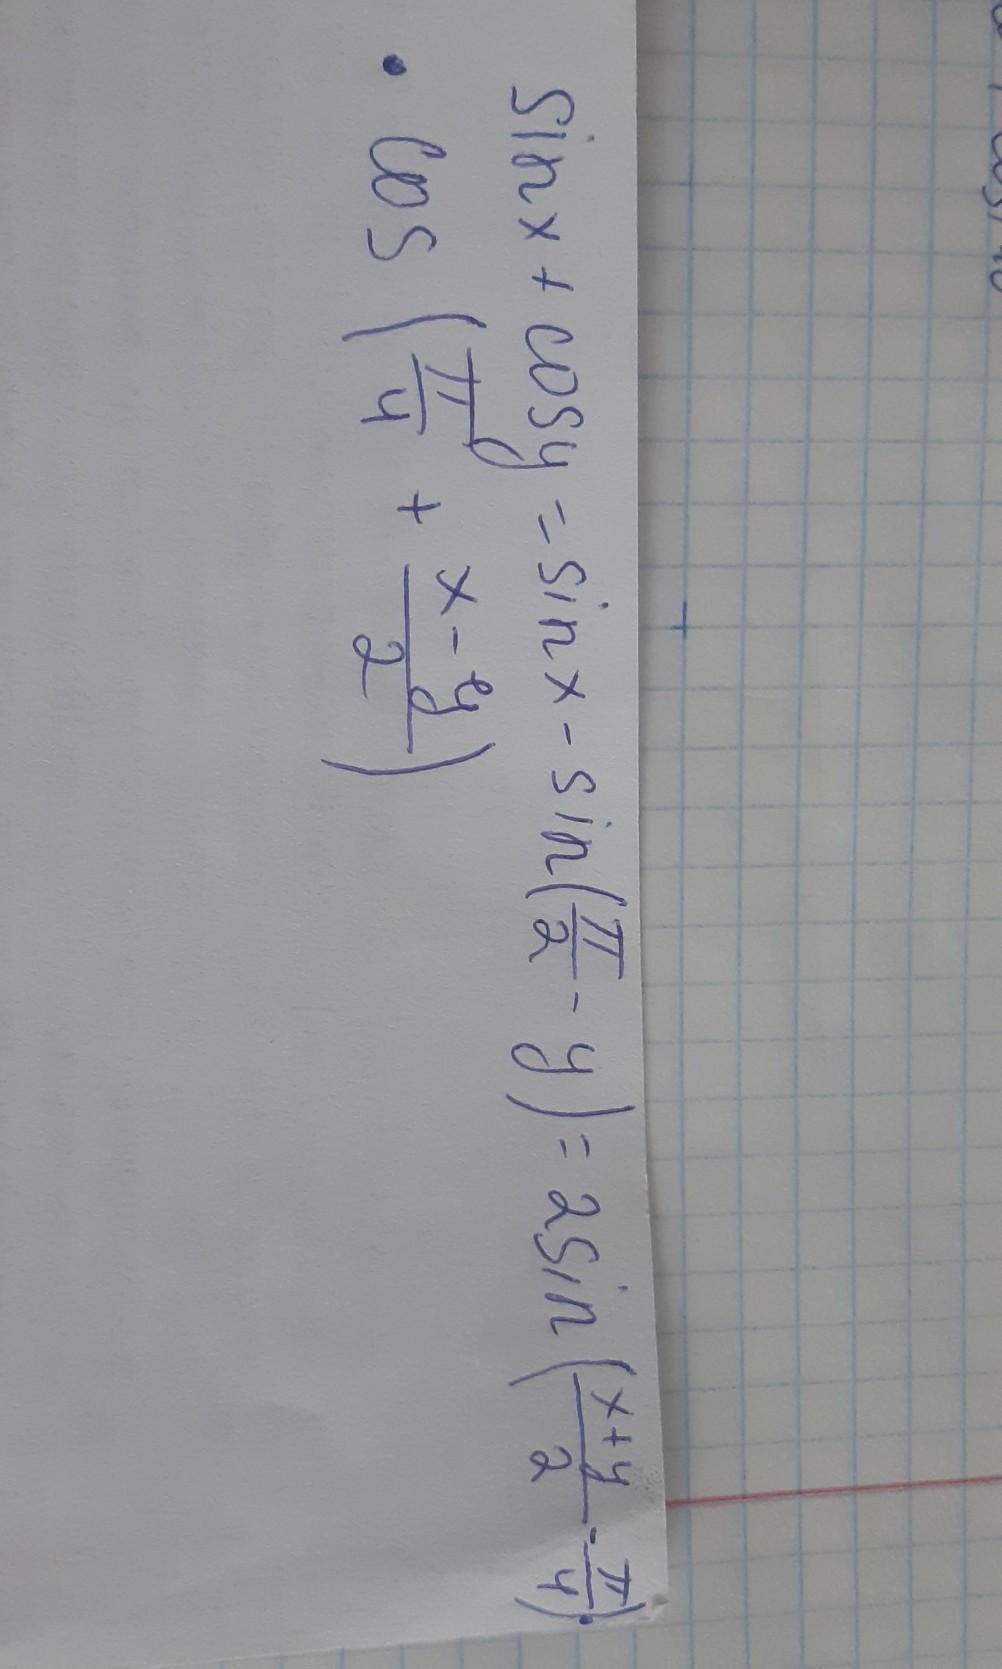 sinx + cosy = sinx - sin(π/2 - y) = 2sin(x+y/2 - π/4)·
· cos(π/4 + x-y/2)